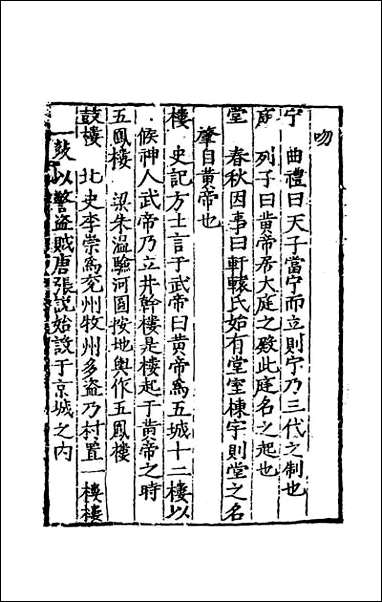 吻
宁　曲禮曰天子當宁而立則宁乃三代之制也
庭　列子曰黄帝居大庭之殿此庭名之起也
堂　春秋因事曰軒轅氏始有堂室棟宇則堂之名
肇自黄帝也
樓　史記方士言于武帝曰黄帝爲五城十二樓以
候神人武帝乃立井幹樓是樓起于黄帝之時
五鳳樓　梁朱温驗河圖按地輿作五鳳樓
鼓樓　北史李崇爲兖州牧州多盗乃村置一樓樓
一鼓以警盗賊唐張説始設于京城之内